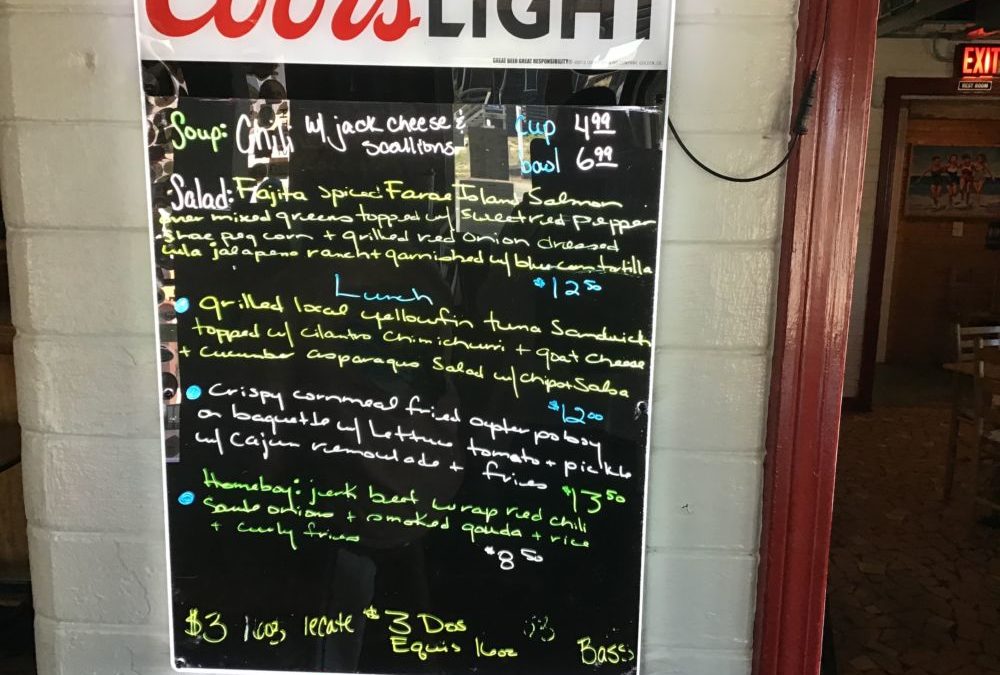 Coors LIGHT
GREAT BEER GREAT RESPONSIBILITY
EXIT
REST ROOM
Soup: Chili w/ jack cheese & cup 4.99
scallions bowl 6.99
Salad: Fajita Spiced Faroe Island Salmon
over mixed greens topped w/ sweet red pepper
shoe peg corn + grilled red onion dressed
jalapeno ranch + garnished w/ blue corn tortilla
$12.50
Lunch
grilled local yellowfin tuna Sandwich
topped w/ cilantro chimichurri + goat cheese
+ cucumber asparagus Salad w/ chips + Salsa
$12.00
Crispy cornmeal fried oyster poboy
on baguette w/ lettuce tomato + pickle
w/ cajun remoulade + fries $13.50
Homeboy: jerk beef wrap red chili
onions + smoked gouda + rice
+ curly fries
$8.50
$3 tecate $3 Dos
Equis 16oz
Bass